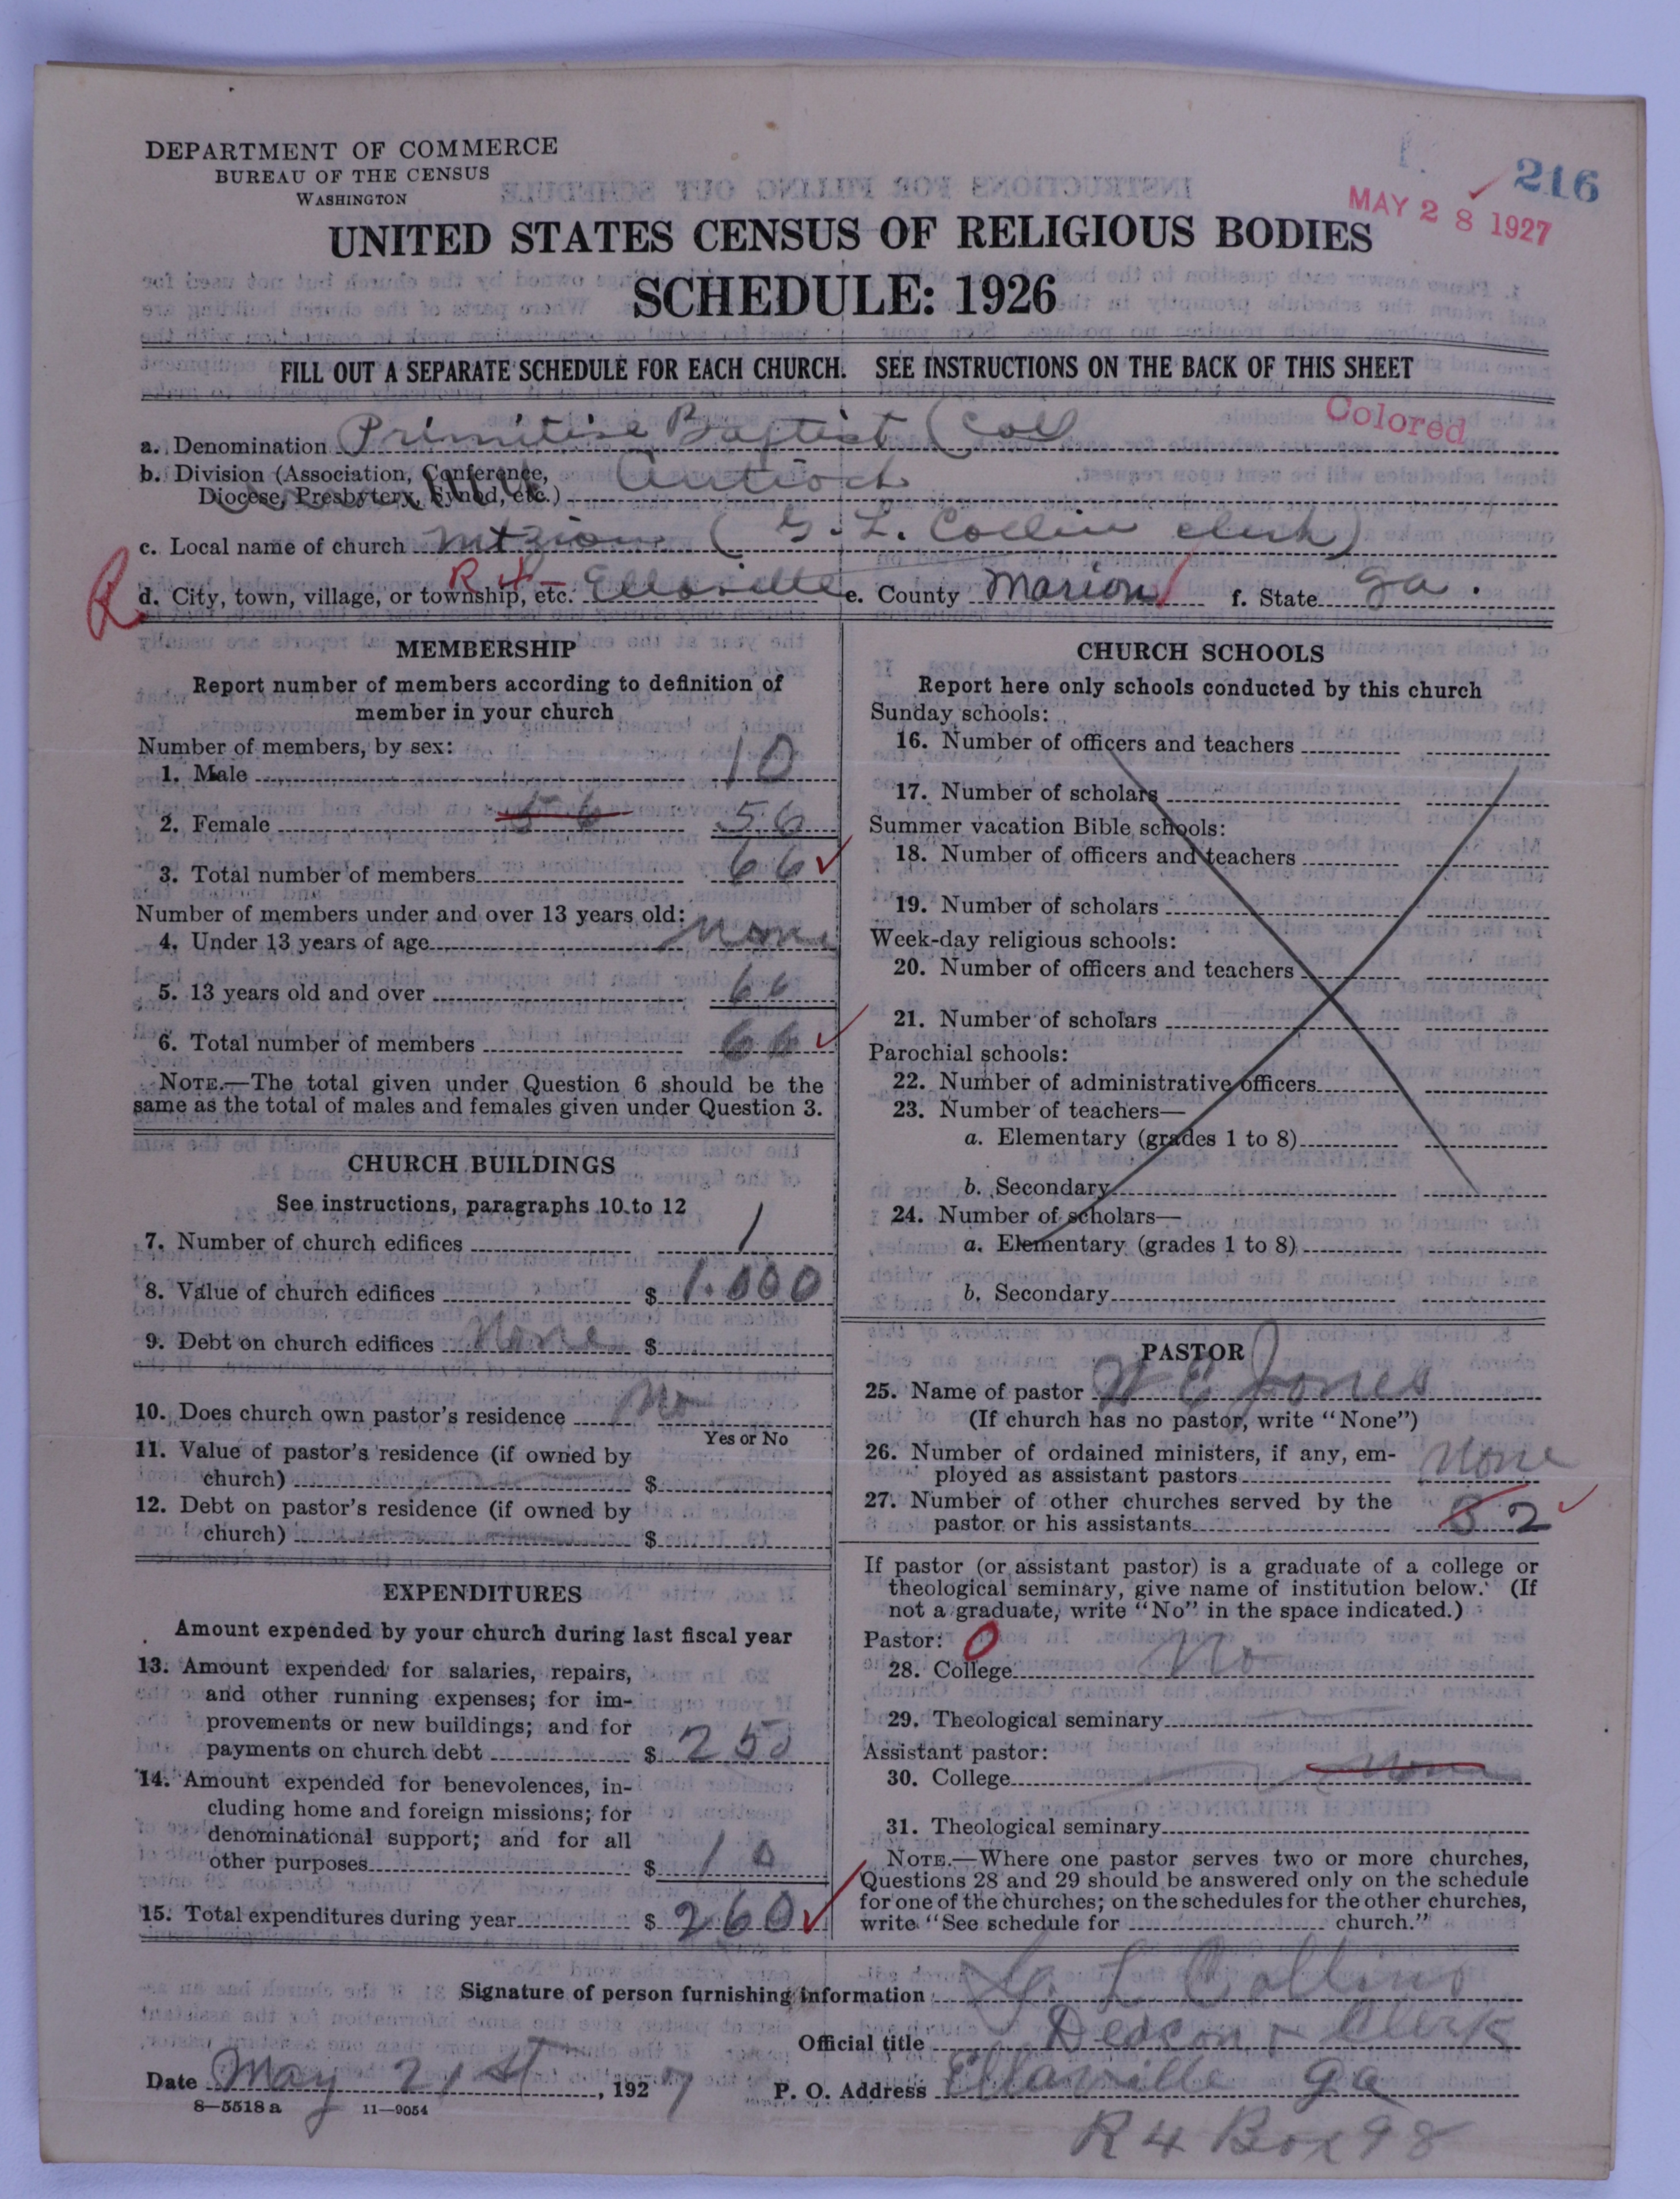 DEPARTMENT OF COMMERCE
BUREAU OF THE CENSUS
WASHINGTON
216
MAY 28 1927
UNITED STATES CENSUS OF RELIGIOUS BODIES
SCHEDULE: 1926
FILL OUT A SEPARATE SCHEDULE FOR EACH CHURCH. SEE INSTRUCTIONS ON THE BACK OF THIS SHEET
Colored
a. Denomination Primitive Baptist (Col)
b. Division (Association, Conference,
Diocese, Presbytery, Synod, etc.) Antioch
c. Local name of church Mt Zion (G. L. Collin clerk)
R d. City, town, village, or township, etc. R 4 - Ellaville e. County Marion f. State Ga.
MEMBERSHIP
Report number of members according to definition of
member in your church
Number of members, by sex:
1. Male 10
2. Female 56 56
3. Total number of members 66
Number of members under and over 13 years old:
4. Under 13 years of age None
5. 13 years old and over 66
6. Total number of members 66
NOTE.—The total given under Question 6 should be the
same as the total of males and females given under Question 3.
CHURCH BUILDINGS
See instructions, paragraphs 10 to 12
7. Number of church edifices 1
8. Value of church edifices $ 1.000
9. Debt on church edifices None $
10. Does church own pastor's residence No
Yes or No
11. Value of pastor's residence (if owned by
church) $
12. Debt on pastor's residence (if owned by
church) $
EXPENDITURES
Amount expended by your church during last fiscal year
13. Amount expended for salaries, repairs,
and other running expenses; for im-
provements or new buildings; and for
payments on church debt $ 250
14. Amount expended for benevolences, in-
cluding home and foreign missions; for
denominational support; and for all
other purposes $ 10
15. Total expenditures during year $ 260
CHURCH SCHOOLS
Report here only schools conducted by this church
Sunday schools:
16. Number of officers and teachers
17. Number of scholars
Summer vacation Bible schools:
18. Number of officers and teachers
19. Number of scholars
Week-day religious schools:
20. Number of officers and teachers
21. Number of scholars
Parochial schools:
22. Number of administrative officers
23. Number of teachers—
a. Elementary (grades 1 to 8)
b. Secondary
24. Number of scholars—
a. Elementary (grades 1 to 8)
b. Secondary
PASTOR
25. Name of pastor W E Jones
(If church has no pastor, write "None")
26. Number of ordained ministers, if any, em-
ployed as assistant pastors None
27. Number of other churches served by the
pastor or his assistants 3 2
If pastor (or assistant pastor) is a graduate of a college or
theological seminary, give name of institution below. (If
not a graduate, write "No" in the space indicated.)
Pastor: 0
28. College No
29. Theological seminary
Assistant pastor:
30. College None
31. Theological seminary
NOTE.—Where one pastor serves two or more churches,
Questions 28 and 29 should be answered only on the schedule
for one of the churches; on the schedules for the other churches,
write "See schedule for church."
Signature of person furnishing information G. L Collins
Official title Deacon & Clerk
Date May 21st, 1927 P. O. Address Ellaville Ga
8—5518 a 11—9054
R 4 Box 98